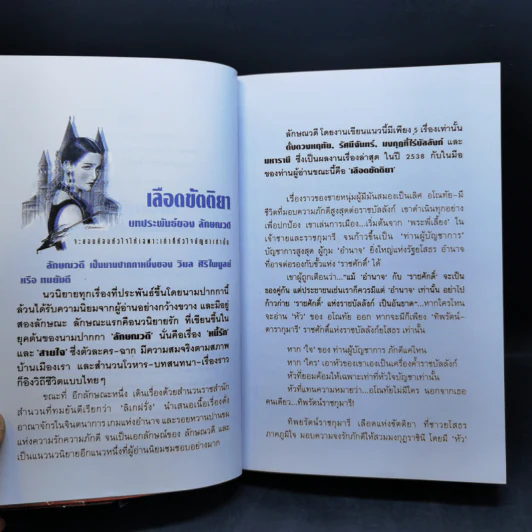 เลือดขัตติยา
บทประพันธ์ของ ลักษณวดี
ลักษณวดี เป็นนามปากกาหนึ่งของ วิมล ศิริไพบูลย์
หรือ ทมยันตี
นวนิยายทุกเรื่องที่ประพันธ์ขึ้นโดยนามปากกานี้
ล้วนได้รับความนิยมจากผู้อ่านอย่างกว้างขวาง และมีอยู่
สองลักษณะ ลักษณะแรกคือนวนิยายรัก ที่เขียนขึ้นใน
ยุคต้นของนามปากกา 'ลักษณวดี' นั่นคือเรื่อง 'หนี้รัก'
และ 'สายใจ' ซึ่งตัวละคร-ฉาก มีความสมจริงตามสภาพ
บ้านเมืองเรา และสำนวนโวหาร-บทสนทนา-เรื่องราว
ก็อิงวิถีชีวิตแบบไทยๆ
ขณะที่ อีกลักษณะหนึ่ง เดินเรื่องด้วยสำนวนราชสำนัก
สำนวนที่ทมยันตีเรียกว่า 'ลิเกฝรั่ง' นำเสนอเนื้อเรื่องดั่ง
อาณาจักรในจินตนาการ เกมแห่งอำนาจ และรอยหวานปานขม
แห่งความรักความภักดี จนเป็นเอกลักษณ์ของ ลักษณวดี และ
เป็นแนวนวนิยายอีกแนวหนึ่งที่ผู้อ่านนิยมชมชอบอย่างมาก
ลักษณวดี โดยงานเขียนแนวนี้มีเพียง 5 เรื่องเท่านั้น
ดั่งดวงหฤทัย, รัศมีจันทร์, มงกุฎที่ไร้บัลลังก์ และ
มหารานี ซึ่งเป็นผลงานเรื่องล่าสุด ในปี 2538 กับในมือ
ของท่านผู้อ่านขณะนี้คือ 'เลือดขัตติยา'
เรื่องราวของชายหนุ่มผู้มีมันสมองเป็นเลิศ อโณทัย-มี
ชีวิตที่มอบความภักดีสูงสุดต่อราชบัลลังก์ เขาดำเนินทุกอย่าง
เพื่อปกป้อง เขาเล่นการเมือง...เริ่มต้นจาก 'พระพี่เลี้ยง' ใน
เจ้าชายและราชกุมารี จนก้าวขึ้นเป็น 'ท่านผู้บัญชาการ'
บัญชาการสูงสุด ผู้กุม 'อำนาจ' ยิ่งใหญ่แห่งรัฐยโสธร อำนาจ
ที่อาจต่อรองกับขั้วแห่ง 'ราชศักดิ์' ได้
เขาผู้ถูกเตือนว่า..."แม้ 'อำนาจ' กับ 'ราชศักดิ์' จะเป็น
ของคู่กัน แต่ประชายนเช่นเราก็ควรมีแต่ 'อำนาจ' เท่านั้น อย่าไป
ก้าวก่าย 'ราชศักดิ์' แห่งราชบัลลังก์ เป็นอันขาด"...หากใครไหน
จะอ่าน 'หัว' ของ อโณทัย ออก หากจะมีก็เพียง 'ทิพรัตน์-
ดารากุมารี' ราชศักดิ์แห่งราชบัลลังก์ยโสธร เท่านั้น
หาก 'ใจ' ของ ท่านผู้บัญชาการ ภักดีแค่ไหน
หาก 'ใคร' เอาหัวของเขาเองเป็นเครื่องค้ำราชบัลลังก์
หัวที่ยอมค้อมให้เฉพาะเท่าที่หัวใจบัญชาเท่านั้น
หัวที่แทนความหมายว่า...อโณทัยไม่มีใคร นอกจากเธอ
คนเดียว...ทิพรัตน์ราชกุมารี!
ทิพยรัตน์ราชกุมารี เลือดแห่งขัตติยา ที่ชาวยโสธร
ภาคภูมิใจ มอบความจงรักภักดีให้สวมมงกุฎราชินี โดยมี 'หัว'